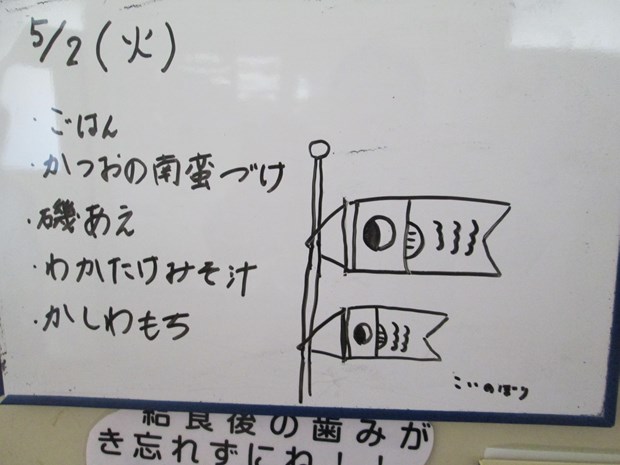 5/2(火)
・ごはん
・かつおの南蛮づけ
・磯あえ
・わかたけみそ汁
・かしわもち
こいのぼり
給食後の歯みが
き忘れずにね!!